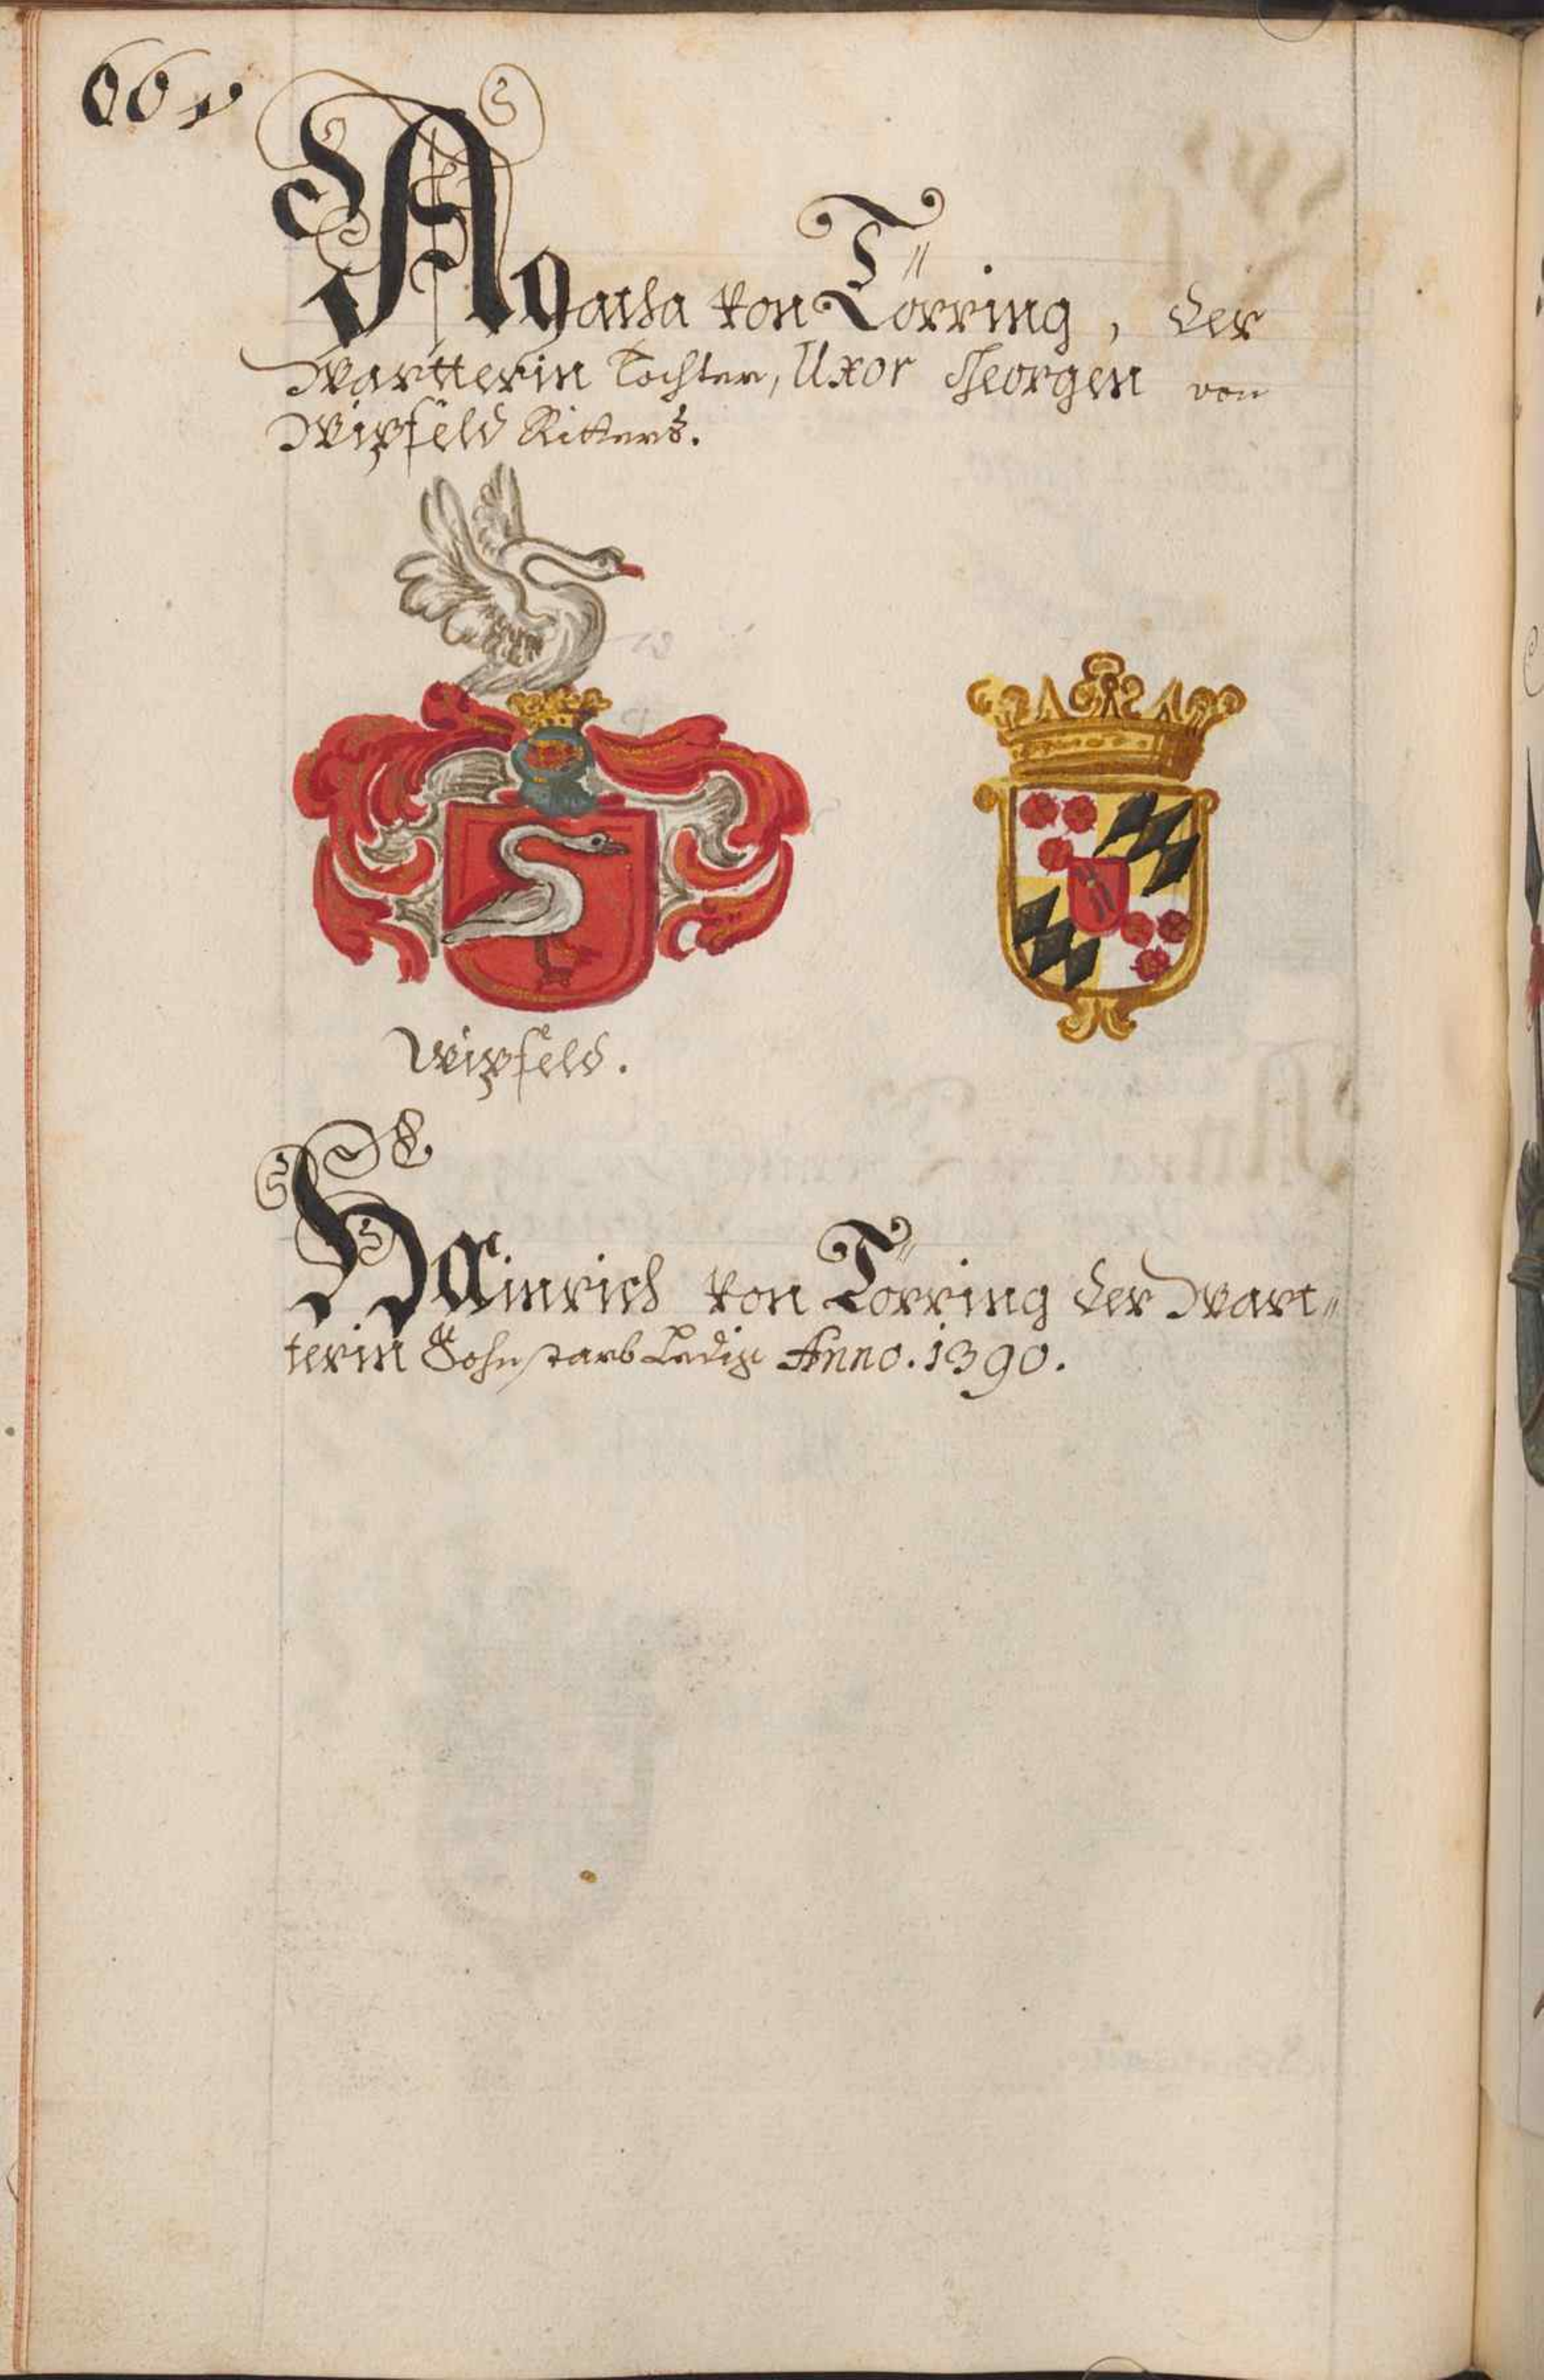 66 v
Agatha von Törring, der
Wartterin Tochter, Uxor Georgen von
Wipfeld Ritters.
Wipfeld.
Hainrich von Törring der Wart„
terin Sohn starb Ledig Anno. 1390.